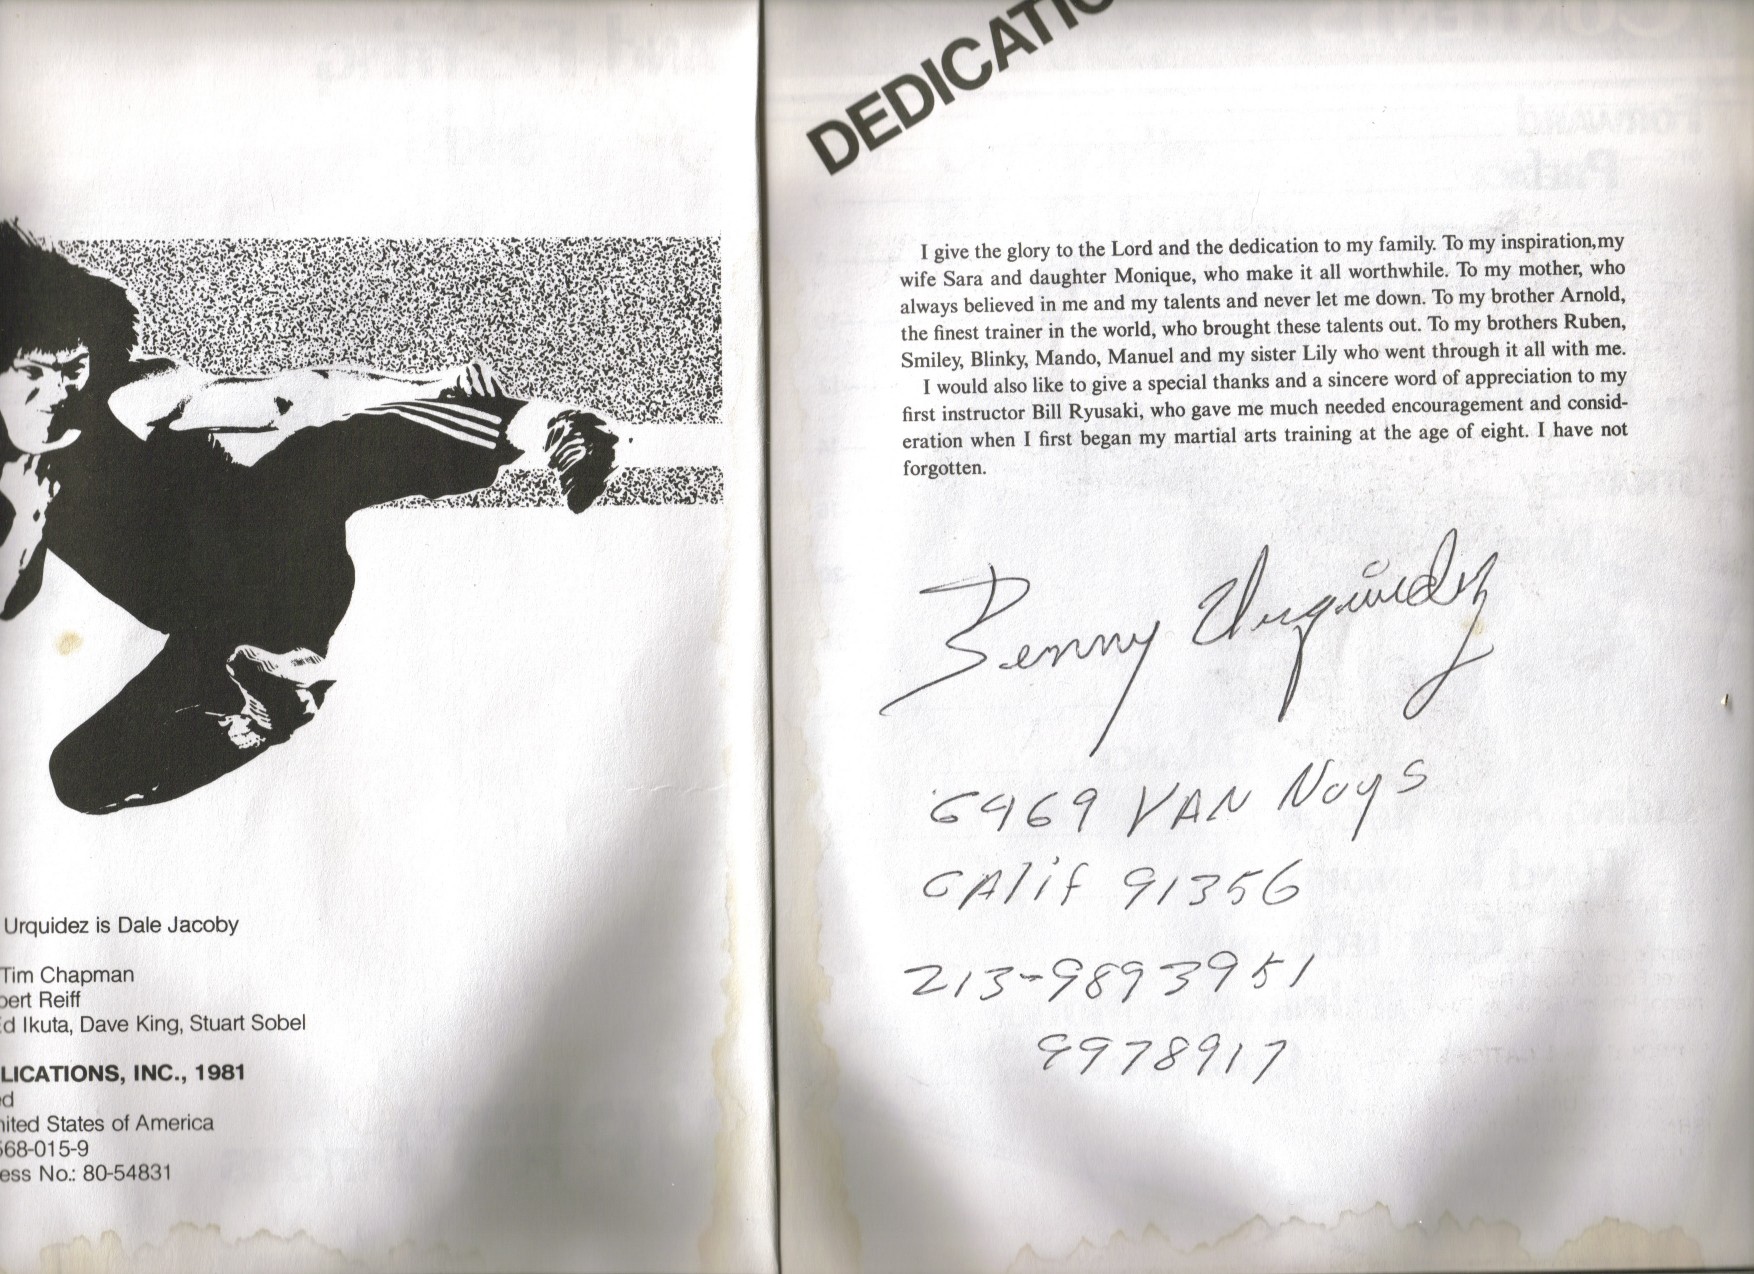 Urquidez is Dale Jacoby
Tim Chapman
bert Reiff
d Ikuta, Dave King, Stuart Sobel
LICATIONS, INC., 1981
d
nited States of America
568-015-9
ess No.: 80-54831
DEDICATIO
I give the glory to the Lord and the dedication to my family. To my inspiration,my
wife Sara and daughter Monique, who make it all worthwhile. To my mother, who
always believed in me and my talents and never let me down. To my brother Arnold,
the finest trainer in the world, who brought these talents out. To my brothers Ruben,
Smiley, Blinky, Mando, Manuel and my sister Lily who went through it all with me.
I would also like to give a special thanks and a sincere word of appreciation to my
first instructor Bill Ryusaki, who gave me much needed encouragement and consid-
eration when I first began my martial arts training at the age of eight. I have not
forgotten.
Benny Urquidez
6969 VAN Nuys
CAlif 91356
213-9893951
9978917